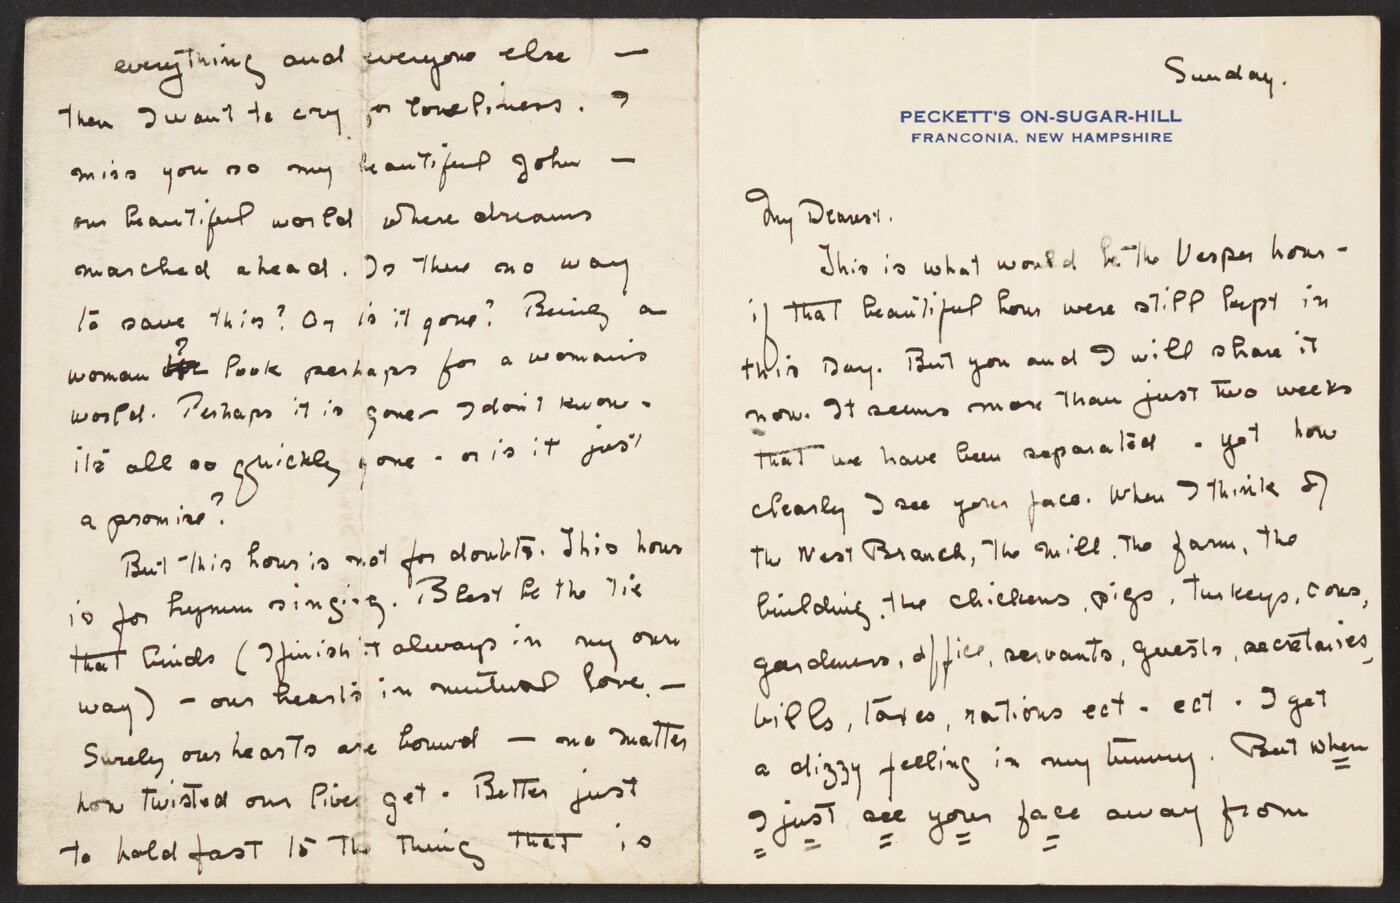 Sunday.
PECKETT'S ON-SUGAR-HILL
FRANCONIA, NEW HAMPSHIRE
My Dearest.
This is what would be the Vesper hour -
if that beautiful hour were still kept in
this Day. But you and I will share it
now. It seems more than just two weeks
that we have been separated - yet how
clearly I see your face. When I think of
the West Branch, the mill, the farm, the
building, the chickens, pigs, turkeys, cows,
gardeners, office, servants, guests, secretaries,
bills, taxes, rations ect - ect - I get
a dizzy feeling in my tummy. But when
I just see your face away from
everything and everyone else —
then I want to cry for loneliness. I
miss you so my beautiful John —
our beautiful world where dreams
marched ahead. Is there no way
to save this? Or is it gone? Being a
woman I look perhaps for a woman's
world. Perhaps it is gone - I don't know -
it's all so quickly gone - or is it just
a promise?
But this hour is not for doubts. This hour
is for hymn singing. Blest be the tie
that binds (I finish it always in my own
way) - our hearts in mutual love. —
Surely our hearts are bound — no matter
how twisted our lives get - Better just
to hold fast to the thing that is